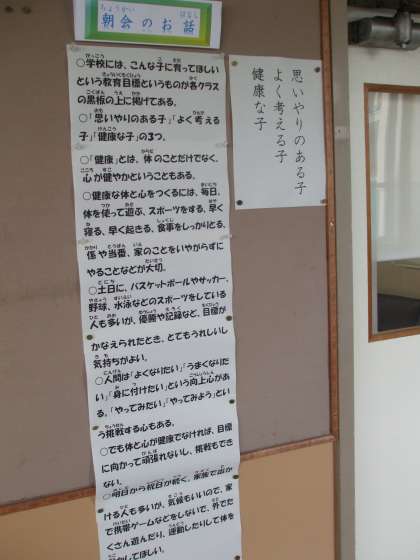 朝会のお話
○学校には、こんな子に育ってほしい
という教育目標というものが各クラス
の黒板の上に掲げてある。
○「思いやりのある子」「よく考える
子」「健康な子」の3つ。
○「健康」とは、体のことだけでなく、
心が健やかということもある。
○健康な体と心をつくるには、毎日、
体を使って遊ぶ、スポーツをする、早く
寝る、早く起きる、食事をしっかりとる、
係や当番、家のことをいやがらずに
やることなどが大切。
○土日に、バスケットボールやサッカー、
野球、水泳などのスポーツをしている
人も多いが、優勝や記録など、目標が
かなえられたとき、とてもうれしいし
気持ちがよい。
○人間は「よくなりたい」「うまくなりた
い」「身に付けたい」という向上心があ
る。「やってみたい」「やってみよう」とい
う挑戦する心もある。
○でも体と心が健康でなければ、目標
に向かって頑張れないし、挑戦もでき
ない。
○明日から祝日が続く。家族で出か
ける人も多いが、気候もいいので、家
で携帯ゲームなどをしないで、外でた
くさん遊んだり、運動したりして体を
思いやりのある子
よく考える子
健康な子